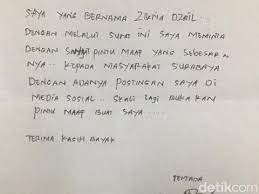 SAYA YANG BERNAMA ZIKRIA DZAIL...
DENGAN MELALUI SURAT INI SAYA MEMINTA
DENGAN SANGAT PINTU MAAF YANG SEBESAR²
NYA.. KEPADA MASYARAKAT SURABAYA
DENGAN ADANYA POSTINGAN SAYA DI
MEDIA SOSIAL.. SEKALI LAGI BUKAKAN
PINTU MAAF BUAT SAYA.....
TERIMA KASIH BAYAK
detikcom